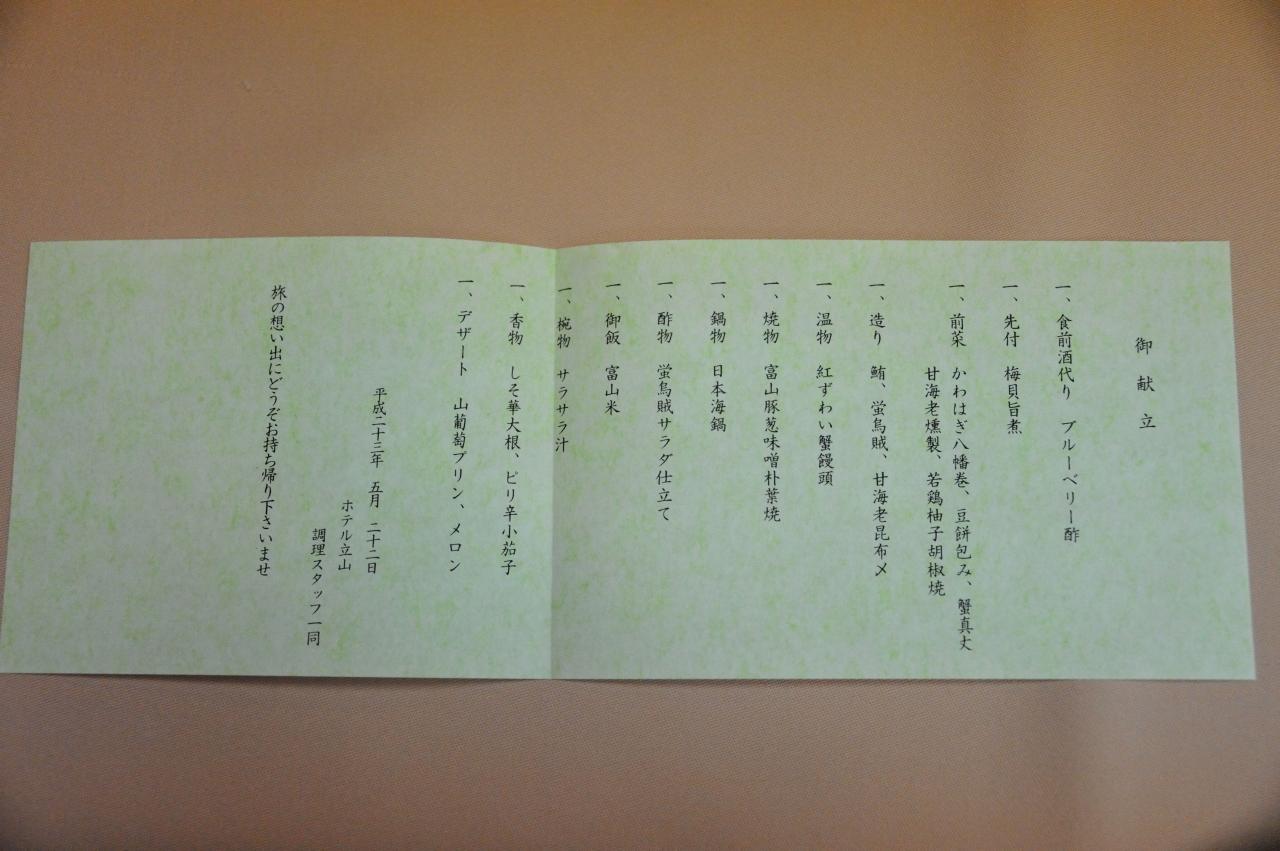 御献立
一、食前酒代り　ブルーベリー酢
一、先付　梅貝旨煮
一、前菜　かわはぎ八幡巻、豆餅包み、蟹真丈
甘海老燻製、若鶏柚子胡椒焼
一、造り　鮪、蛍烏賊、甘海老昆布〆
一、温物　紅ずわい蟹饅頭
一、焼物　富山豚葱味噌朴葉焼
一、鍋物　日本海鍋
一、酢物　蛍烏賊サラダ仕立て
一、御飯　富山米
一、椀物　サラサラ汁
一、香物　しそ華大根、ピリ辛小茄子
一、デザート　山葡萄プリン、メロン
平成二十三年　五月　二十二日
ホテル立山
調理スタッフ一同
旅の想い出にどうぞお持ち帰り下さいませ